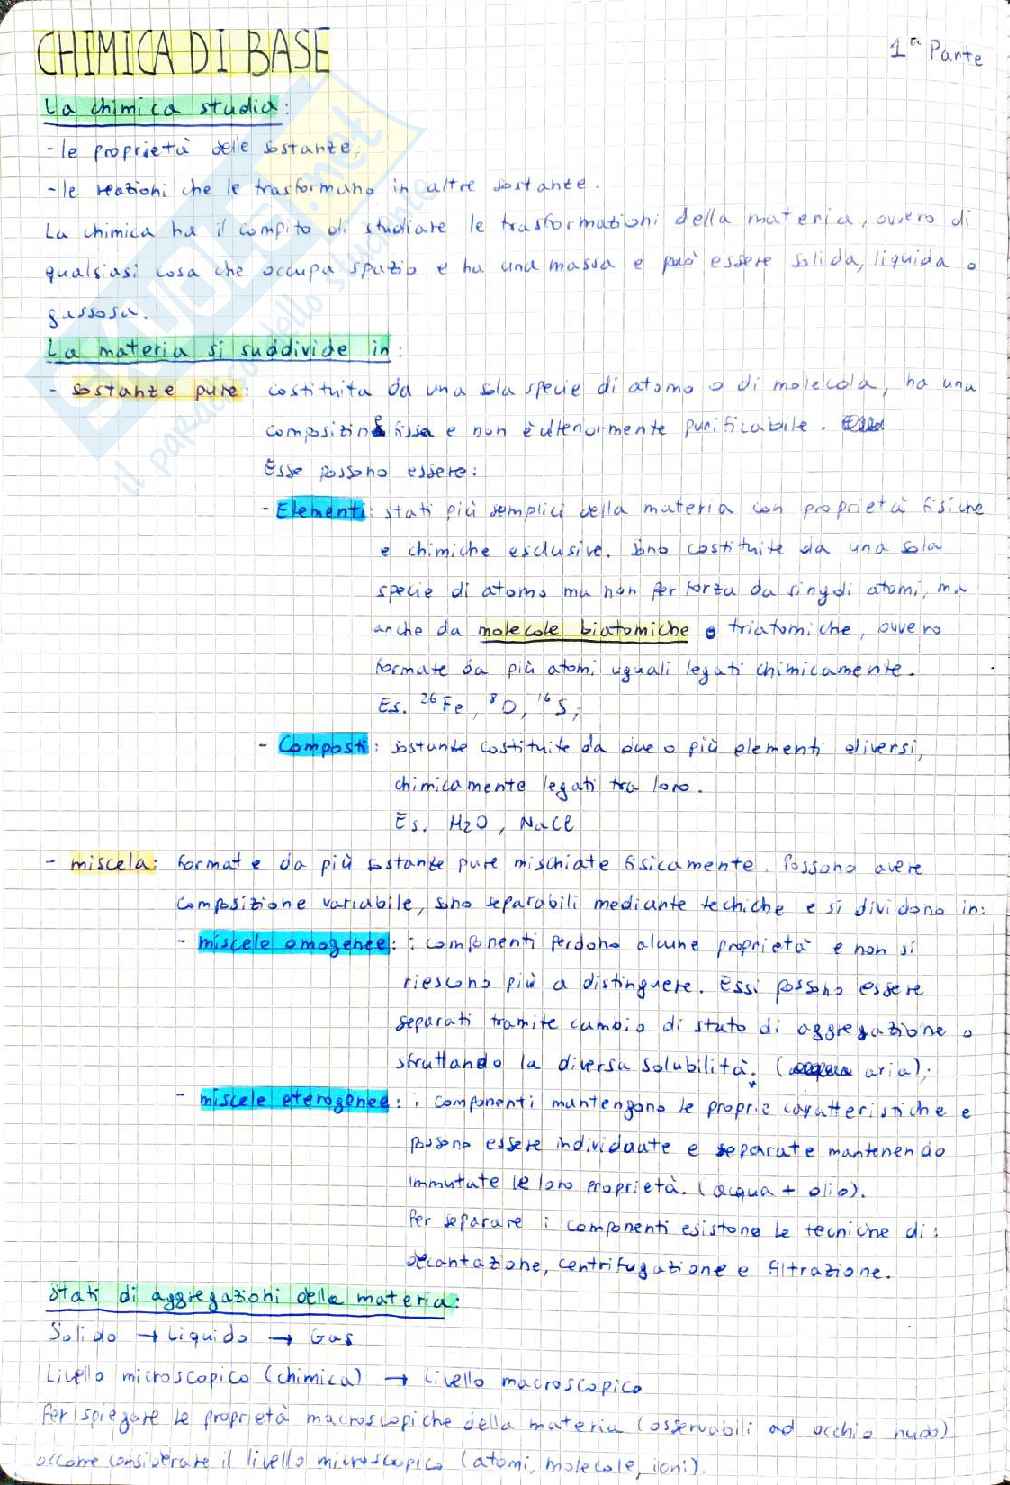 CHIMICA DI BASE
1ª Parte
La chimica studia:
- le proprietà delle sostanze;
- le reazioni che le trasformano in altre sostanze.
La chimica ha il compito di studiare le trasformazioni della materia, ovvero di
qualsiasi cosa che occupa spazio e ha una massa e può essere solida, liquida o
gassosa.
La materia si suddivide in:
- sostanze pure: costituita da una sola specie di atomo o di molecola, ha una
composizine fissa e non è ulteriormente purificabile.
Esse possono essere:
- Elementi: stati più semplici della materia con proprietà fisiche
e chimiche esclusive. Sono costituite da una sola
specie di atomo ma non per forza da singoli atomi, ma
anche da molecole biatomiche o triatomiche, ovvero
formate da più atomi uguali legati chimicamente.
Es. ²⁶Fe, ⁸O, ¹⁶S;
- Composti: sostanze costituite da due o più elementi diversi,
chimicamente legati tra loro.
Es. H2O, NaCl
- miscela: formate da più sostanze pure mischiate fisicamente. Possono avere
composizione variabile, sono separabili mediante techiche e si dividono in:
- miscele omogenee: i componenti perdono alcune proprietà e non si
riescono più a distinguere. Essi possono essere
separati tramite cambio di stato di aggregazione o
sfruttando la diversa solubilità. (aria);
- miscele eterogenee: i componenti mantengono le proprie caratteristiche e
possono essere individuate e separate mantenendo
immutate le loro proprietà. (acqua + olio).
Per separare i componenti esistono le tecniche di:
decantazione, centrifugazione e filtrazione.
Stati di aggregazioni della materia:
Solido → Liquido → Gas
Livello microscopico (chimica) → Livello macroscopico
Per spiegare le proprietà macroscopiche della materia (osservabili ad occhio nudo)
occorre considerare il livello microscopico (atomi, molecole, ioni).
SKUOLA.net
il paradiso dello studente